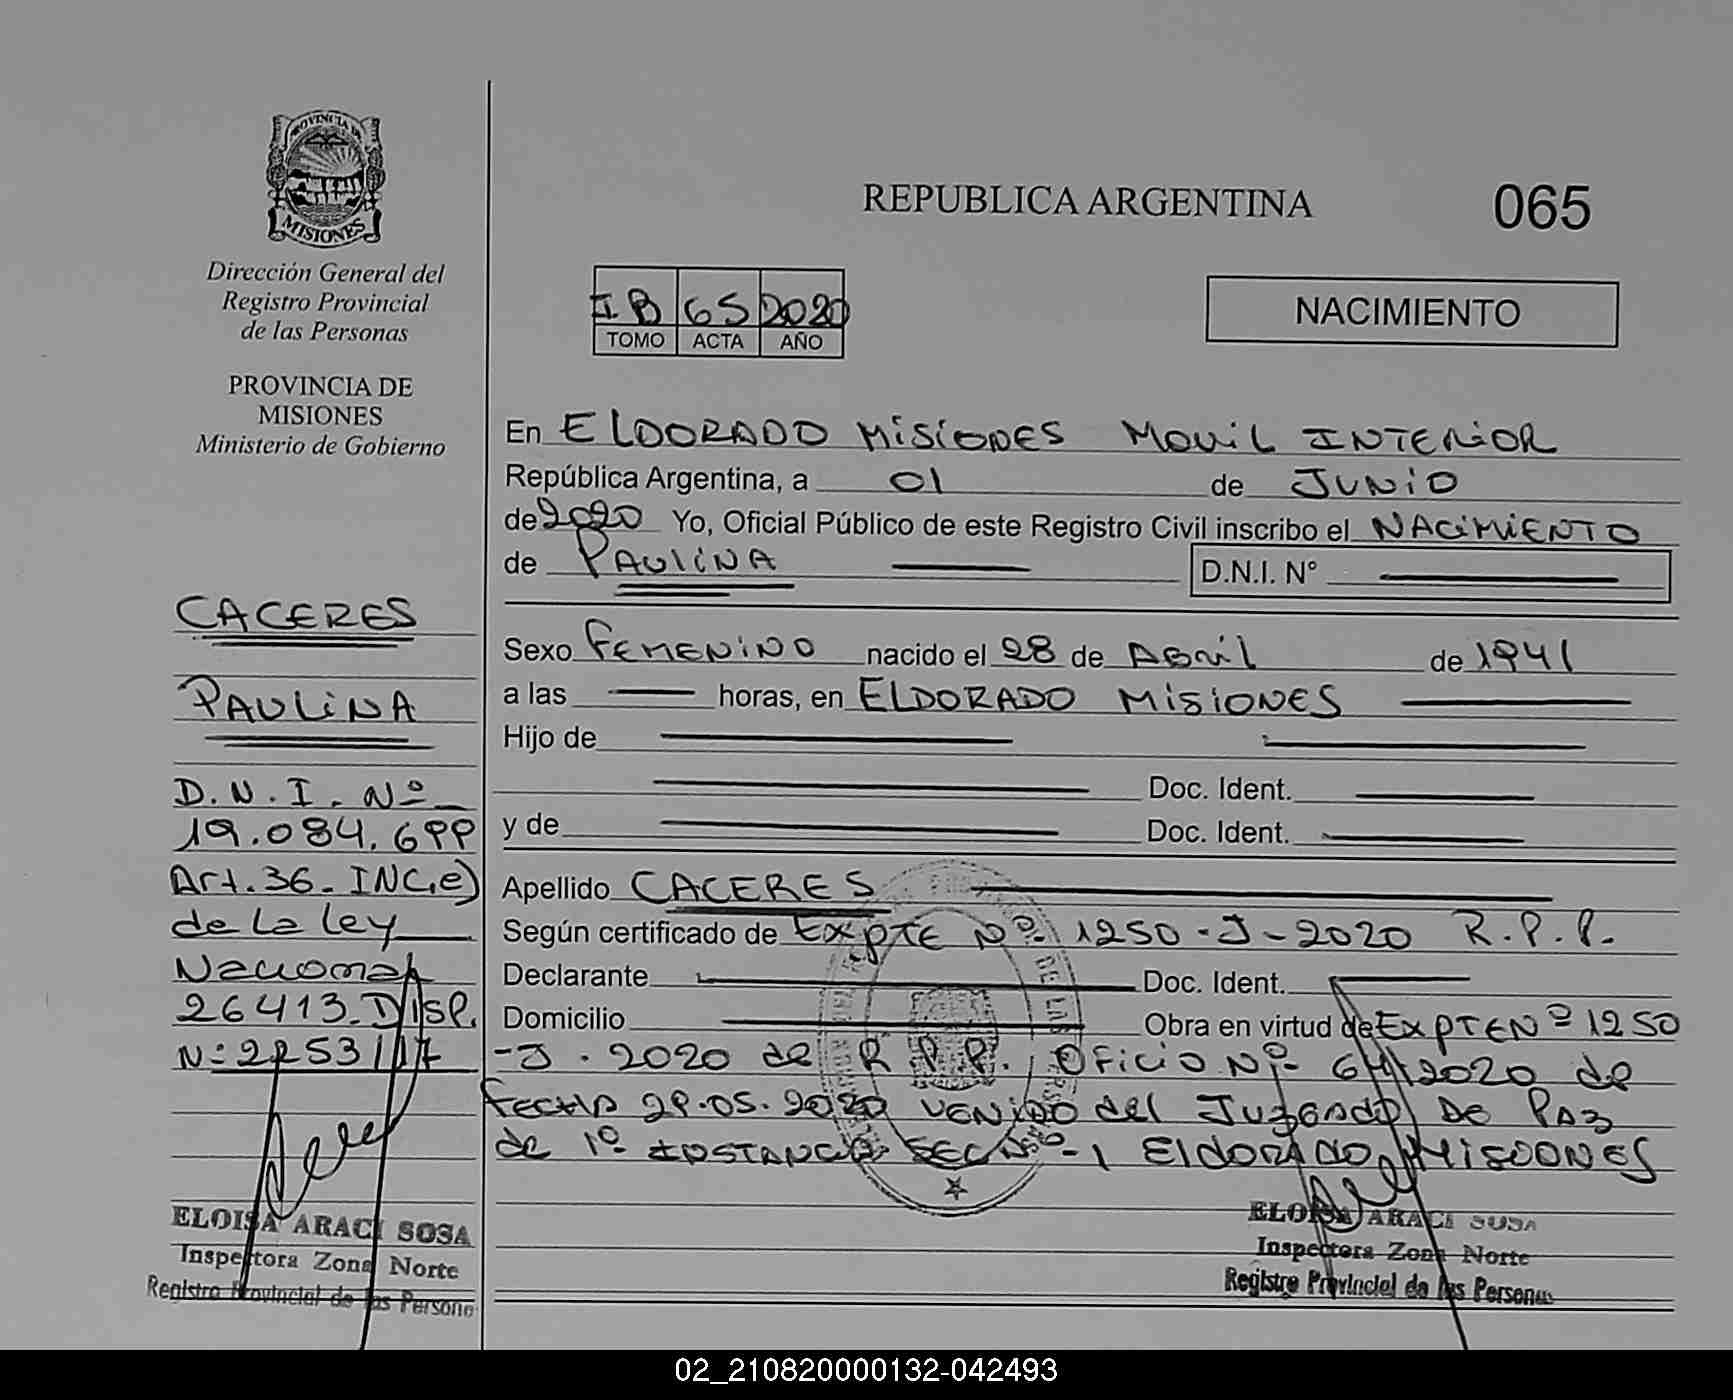 PROVINCIA DE
MISIONES
Dirección General del
Registro Provincial
de las Personas
PROVINCIA DE
MISIONES
Ministerio de Gobierno
CACERES
PAULINA
D.N.I. Nº
19.084.699
Art. 36. INC. e)
de La Ley
Nacional
26413. DISP.
Nº
ELOISA ARACI SOSA
Inspectora Zona Norte
Registro Provincial de las Persona
REPUBLICA ARGENTINA
065
I B 65 2020
TOMO ACTA AÑO
NACIMIENTO
En ELDORADO MISIONES MOVIL INTERIOR
República Argentina, a 01 de JUNIO
de 2020 Yo, Oficial Público de este Registro Civil inscribo el NACIMIENTO
de PAULINA D.N.I. N°
Sexo FEMENINO nacido el 28 de ABRIL de 1941
a las horas, en ELDORADO MISIONES
Hijo de
Doc. Ident.
y de Doc. Ident.
Apellido CACERES
Según certificado de EXPTE Nº 1250-J-2020 R.P.P.
Declarante Doc. Ident.
Domicilio Obra en virtud de EXPTE Nº 1250
-J. 2020 de R.P.P. OFICIO Nº de
FECHA 29.05.2020 VENIDO del JUZGADO DE PAZ
de 1º INSTANCIA SEC Nº-1 ELDORADO MISIONES
ELOISA ARACI SOSA
Inspectora Zona Norte
Registro Provincial de las Personas
02_210820000132-042493